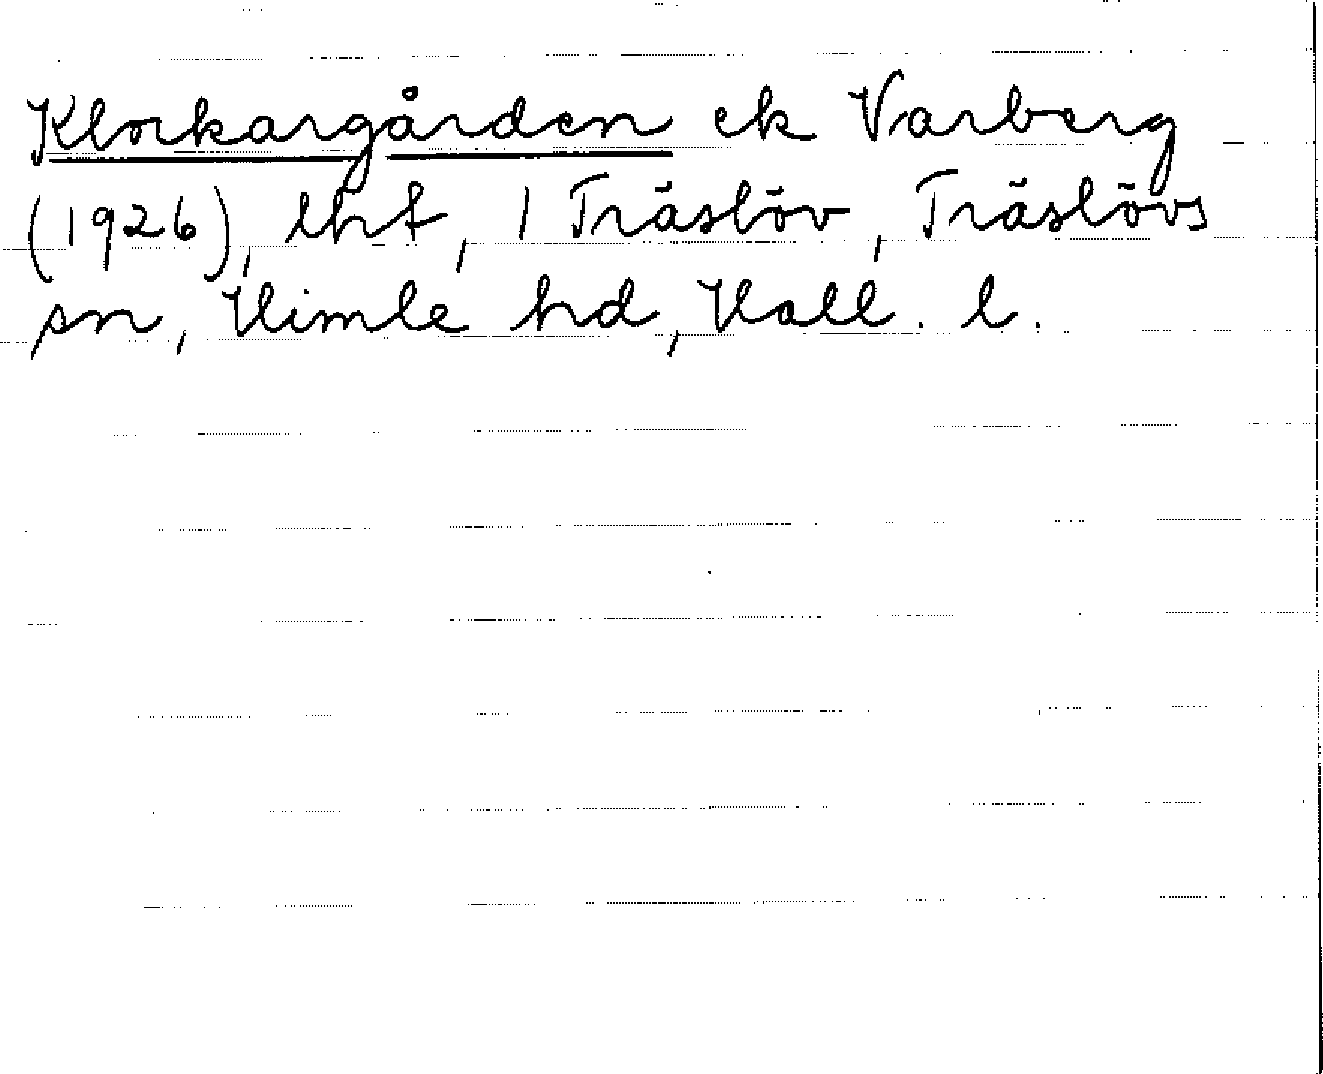 Klockargården ek Varberg
(1926), lht, 1 Träslöv, Träslövs
sn, Himle hd, Hall. l.